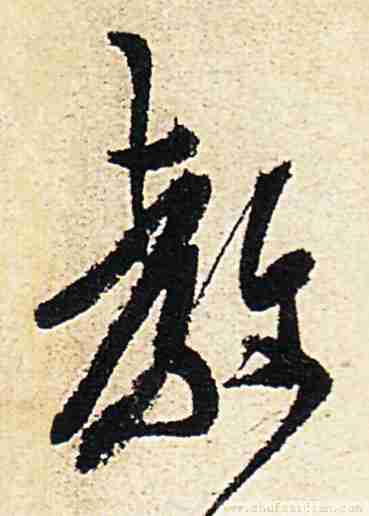 敖
www.shufazidian.com